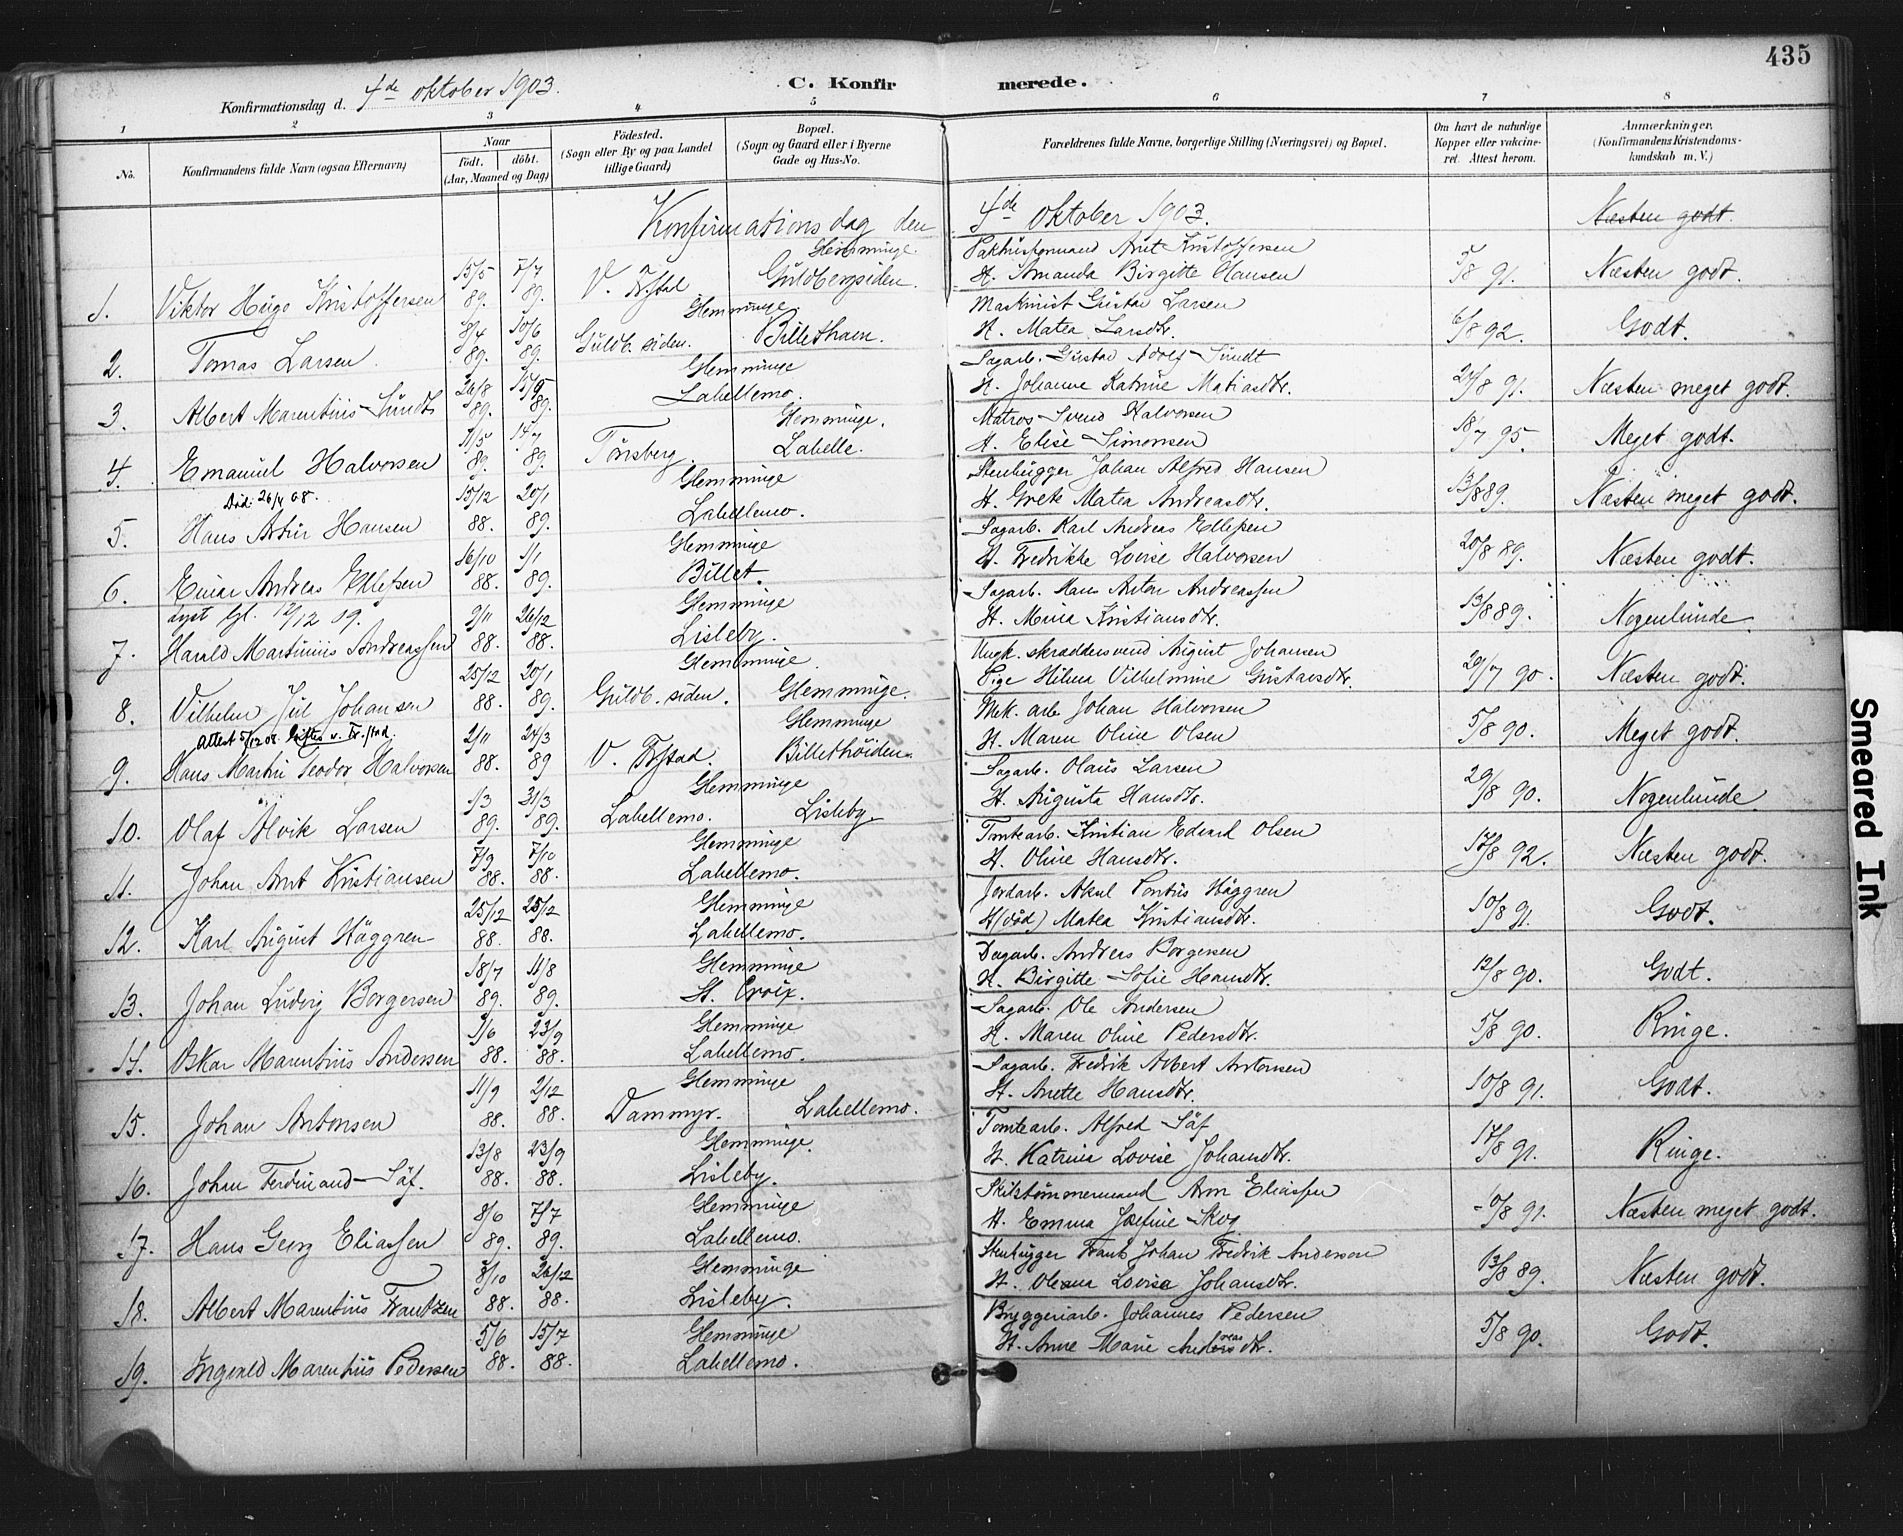 435
Konfirmationsdag d. 4de oktober 1903.
C. Konfirmerede.
1 2 3 4 5 6 7 8
No.
Konfirmandens fulde Navn (ogsaa Efternavn)
Naar
födt. döbt.
(Aar, Maaned og Dag)
Födested.
(Sogn eller By og paa Landet
tillige Gaard)
Bopæl.
(Sogn og Gaard eller i Byerne
Gade og Hus-No.
Forældrenes fulde Navne, borgerlige Stilling (Næringsvei) og Bopæl.
Om havt de naturlige
Kopper eller vakcine-
ret. Attest herom.
Anmærkninger.
(Konfirmandens Kristendoms-
kundskab m. V.)
Konfirmationsdag den 4de oktober 1903. Næsten godt.
Glemminge Pakhusformand Arnt Kristoffersen
1. Viktor Hugo Kristoffersen 15/5 89. 7/7 89. V. Fr.stad Guldbergsiden. H. Amanda Birgitte Hansen 5/8 91. Næsten godt.
Glemminge Maskinist Gustav Larsen
2. Tomas Larsen 8/4 89. 10/6 89. Guldb. siden. Billethavn. H. Matea Larsdtr. 6/8 92. Godt.
Glemminge Sagarb. Gustav Adolf Sundt
3. Albert Marentius Sundt 26/8 89. 15/9 89. Labellemo. H. Johanne Katrine Matiasdtr. 24/8 91. Næsten meget godt.
Glemminge. Matros Svend Halvorsen
4. Emanuel Halvorsen 11/5 89. 14/7 89. Tönsberg. Labelle. H. Elise Simonsen 18/7 95. Meget godt.
Död: 26/4 08.
Glemminge Stenhugger Johan Alfred Hansen
5. Hans Artur Hansen 15/12 88. 20/1 89. Labellemo. H. Grete Matea Andreasdtr. 13/8 89. Næsten meget godt.
Glemminge Sagarb. Karl Andreas Ellefsen
6. Einar Andreas Ellefsen 16/10 88. 1/1 89. Billet. H. Fredrikke Lovise Halvorsen 20/8 89. Næsten godt.
Lyst Gl. 12/12 09.
Glemminge Sagarb. Hans Anton Andreassen
7. Harald Martinius Andreassen 2/11 88. 26/12 88. Lisleby. H. Mina Kristiansdtr. 13/8 89. Nogenlunde.
Glemminge. Ungk. skræddersvend August Johansen
8. Vilhelm Jul Johansen 25/12 88. 20/1 89. Guldb. siden. Glemminge. Pige Hilma Vilhelmine Gustavsdtr. 29/7 90. Næsten godt.
Attest 5/12 08 Giftes v. Fr.stad.
Glemminge Mek. arb. Johan Halvorsen
9. Hans Martin Teodor Halvorsen 2/11 88. 24/3 89 V. Fr.stad. Billethöiden. H. Maren Oline Olsen 5/8 90. Meget godt.
Glemminge Sagarb. Olaus Larsen
10. Olaf Alvik Larsen 1/3 89. 31/3 89. Labellemo. Lisleby. H. Augusta Hansdtr. 29/8 90. Nogenlunde
Glemminge Tomtearb. Kristian Edvard Olsen
11. Johan Arnt Kristiansen 7/9 88. 7/10 88. Labellemo. H. Oline Hansdtr. 17/8 92. Næsten godt.
Glemminge Jordarb. Aksel Pontus Häggren
12. Karl August Häggren 25/12 88. 25/12 88. Labellemo. H. (död.) Matea Kristiansdtr. 10/8 91. Godt.
Glemminge Dagarb. Andreas Borgersen
13. Johan Ludvig Borgersen 18/7 89. 11/8 89. St. Croix. H. Birgitte Sofie Hansdtr. 12/8 90. Godt.
Glemminge Sagarb. Ole Andersen
14. Oskar Marentius Andersen 3/6 88. 23/9 88. Labellemo. H. Maren Oline Pedersdtr. 5/8 90. Ringe.
Glemminge Sagarb. Fredrik Albert Antonsen
15. Johan Antonsen 11/9 88. 2/12 88. Dammyr. Labellemo. H. Anette Hansdtr. 10/8 91. Godt.
Glemminge. Tomtearb. Alfred Säf
16. Johan Ferdinand Säf. 13/8 88. 23/9 88. Lisleby. H. Katrina Lovise Johansdtr. 17/8 91. Ringe.
Glemminge Skibstömmermand Arn Eliassen
17. Hans Georg Eliassen 8/6 89. 7/7 89. Labellemo. H. Emma Josefine Skog 10/8 91. Næsten meget godt.
Glemminge Stenhugger Frank Johan Fredrik Anderson
18. Albert Marentius Frantzen 8/10 88. 26/12 88. Lisleby. H. Olema Lovisa Johansdtr. 13/8 89. Næsten godt.
Glemminge Bryggeriarb. Johannes Pedersen
19. Ingvald Marentius Pedersen 5/6 88. 15/7 88. Labellemo. H. Anne Marie Andersdtr. 5/8 90. Godt.
Smeared Ink